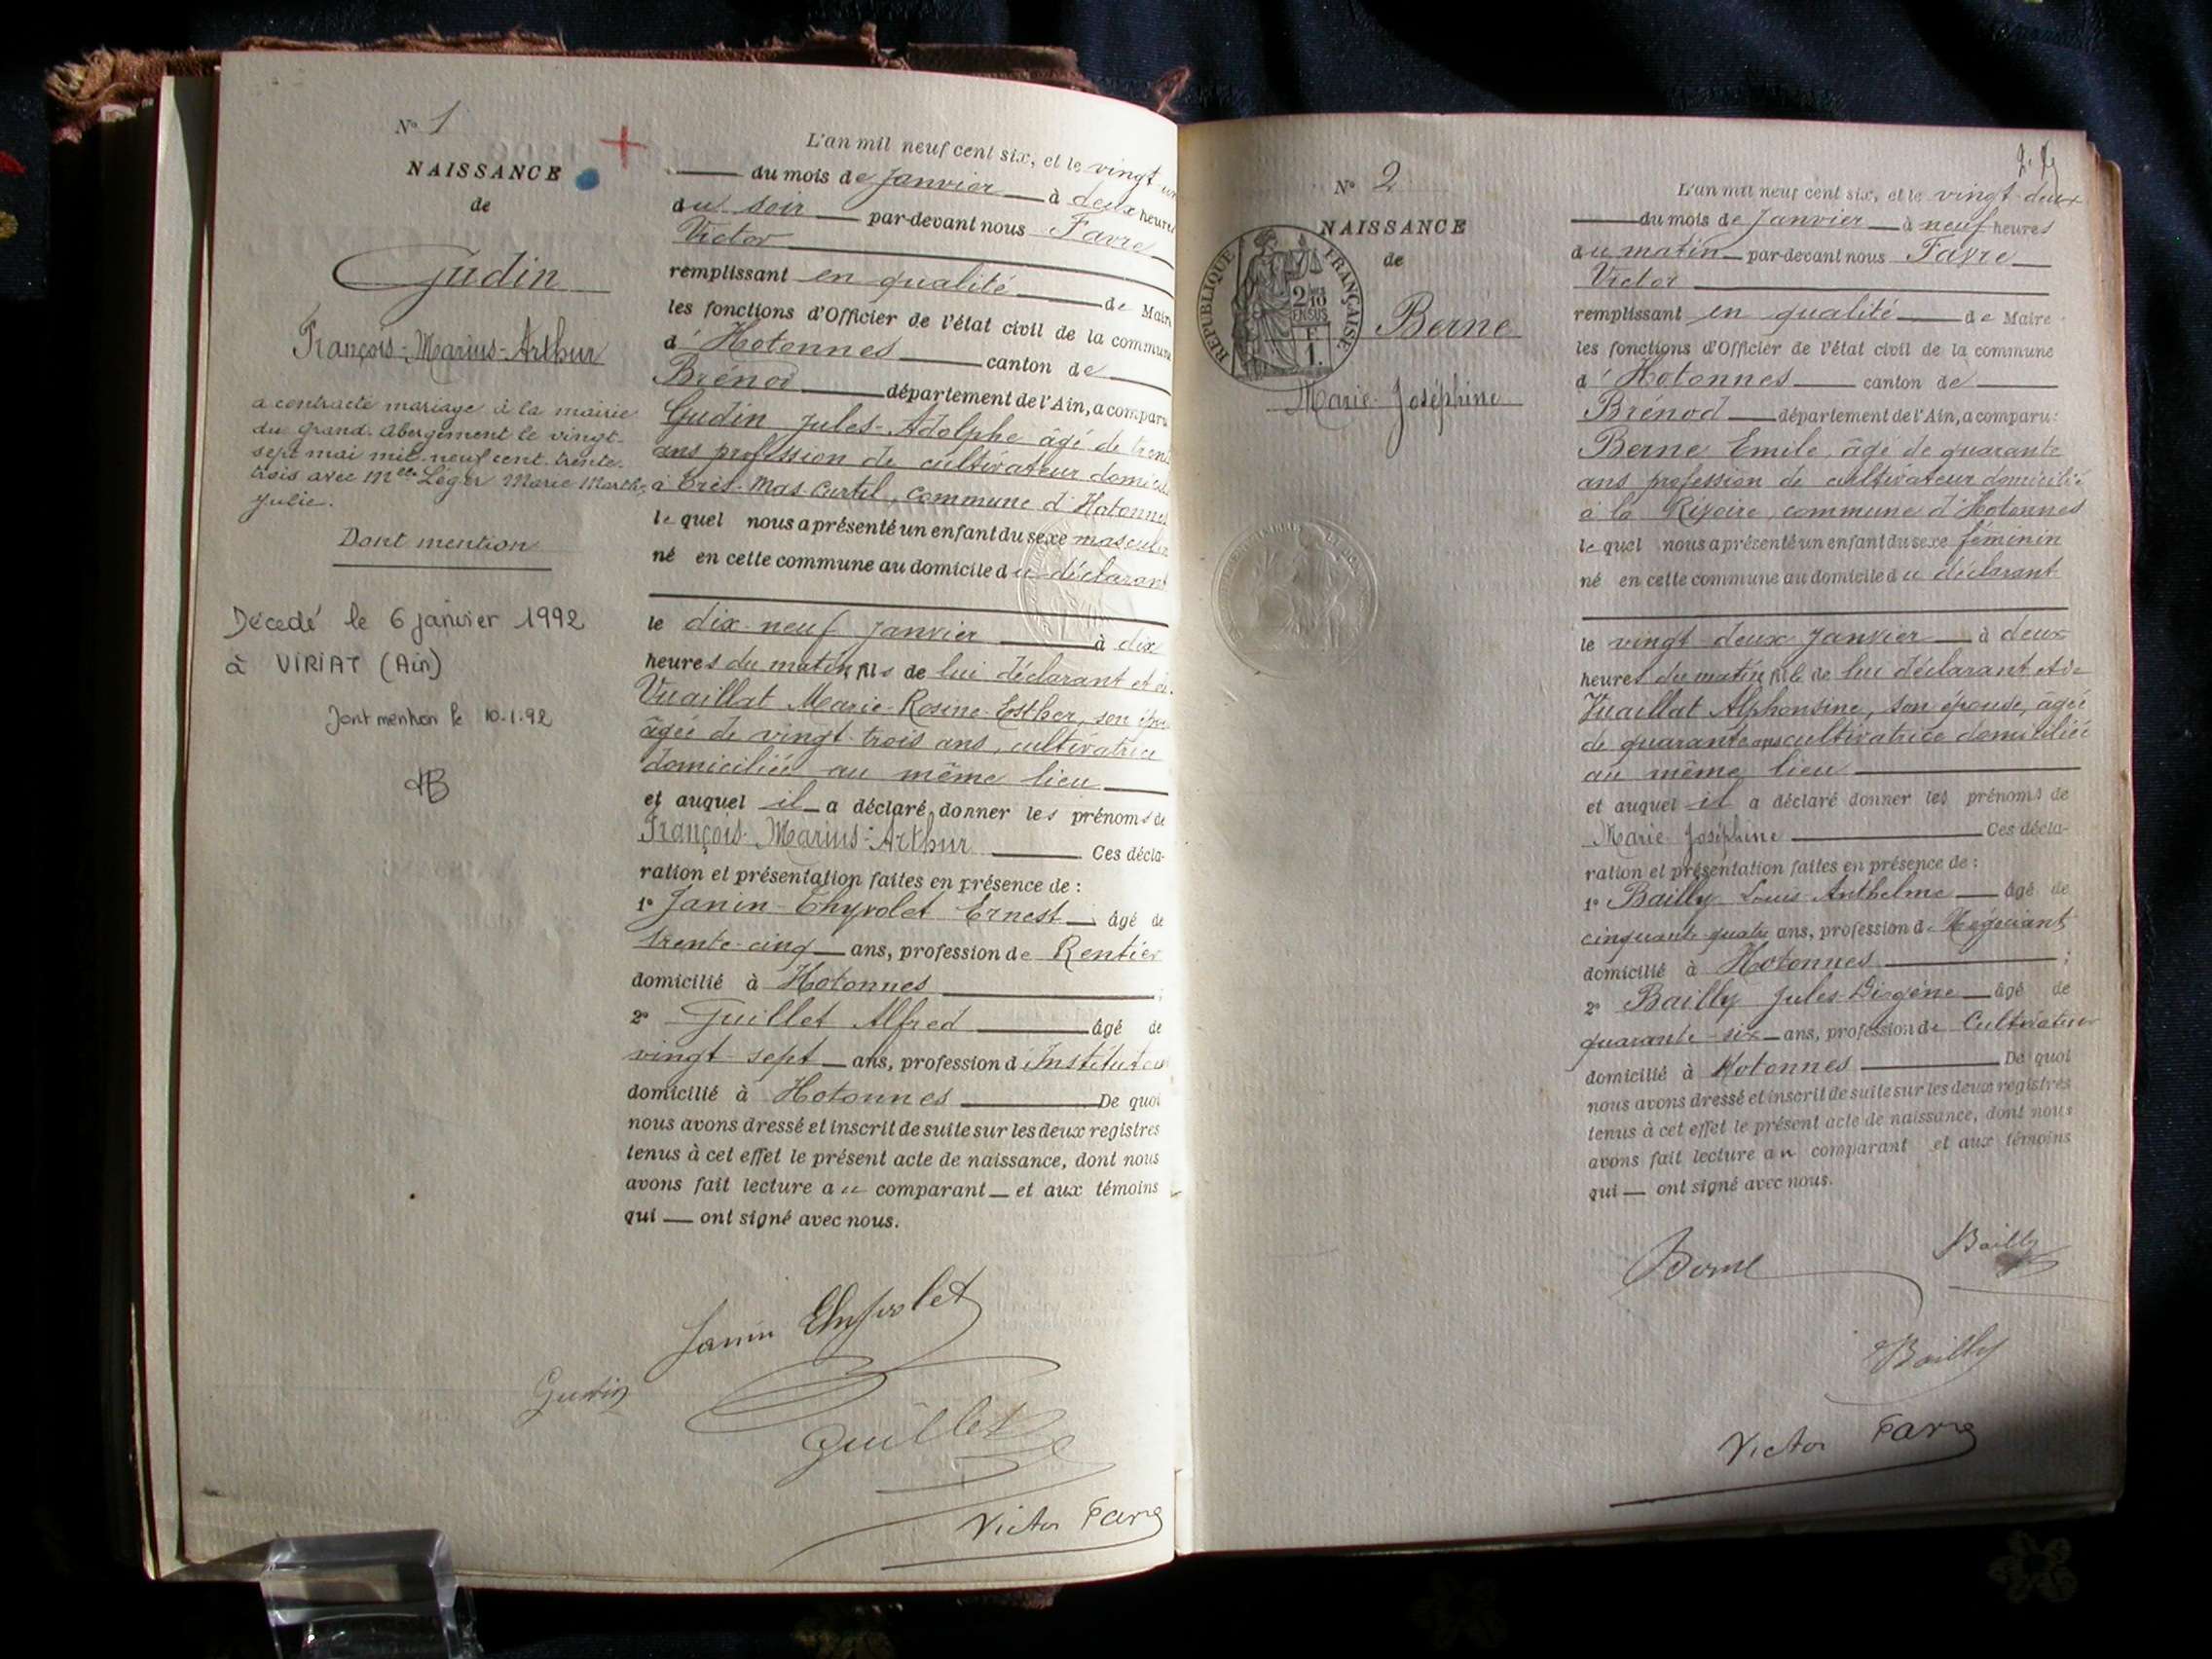 Nº 1
NAISSANCE
de
Gudin
François-Marius-Arthur
a contracté mariage à la mairie
du grand-abergement le vingt-
sept mai mil-neuf cent-trente-
trois avec Melle Léger Marie Marthe
Julie.
Dont mention
Décedé le 6 janvier 1992
à VIRIAT (Ain)
Dont mention le 10.1.92
L'an mil neuf cent six, et le vingt un
du mois de Janvier à deux heures
du soir par-devant nous Favre
Victor
remplissant en qualité de Maire
les fonctions d'Officier de l'état civil de la commune
d'Hotonnes canton de
Brénod département de l'Ain, a comparu
Gudin Jules-Adolphe âgé de
ans profession de cultivateur
à Très-Mas-Curtil, commune d'Hotonnes
le quel nous a présenté un enfant du sexe masculin
né en cette commune au domicile du déclarant
le dix-neuf Janvier à dix
heures du matin, fils de lui déclarant et de
Vuaillat Marie-Rosine-Esther, son
âgée de vingt-trois ans, cultivatrice
domiciliée au même lieu
et auquel il a déclaré donner les prénoms de
François-Marius-Arthur Ces décla-
ration et présentation faites en présence de :
1º Janin-Thyvolet Ernest âgé de
trente-cinq ans, profession de Rentier
domicilié à Hotonnes ;
2º Guillet Alfred âgé de
vingt-sept ans, profession d'Instituteur
domicilié à Hotonnes De quoi
nous avons dressé et inscrit de suite sur les deux registres
tenus à cet effet le présent acte de naissance, dont nous
avons fait lecture au comparant et aux témoins
qui ont signé avec nous.
Janin Thyvolet
Gudin
Guillet
Victor Favre
Nº 2
NAISSANCE
de
RÉPUBLIQUE FRANÇAISE
2/10 EN SUS
1 F.
Berne
Marie-Joséphine
L'an mil neuf cent six, et le vingt-deux
du mois de Janvier à neuf heures
du matin par-devant nous Favre
Victor
remplissant en qualité de Maire
les fonctions d'Officier de l'état civil de la commune
d'Hotonnes canton de
Brénod département de l'Ain, a comparu :
Berne Emile, âgé de quarante
ans profession de cultivateur domicilié
à la Rivoire, commune d'Hotonnes
le quel nous a présenté un enfant du sexe féminin
né en cette commune au domicile du déclarant
le vingt-deux Janvier à deux
heures du matin, fille de lui déclarant et de
Vuaillat Alphonsine, son épouse, âgée
de quarante ans cultivatrice domiciliée
au même lieu
et auquel il a déclaré donner les prénoms de
Marie-Joséphine Ces décla-
ration et présentation faites en présence de :
1º Bailly Louis-Anthelme âgé de
cinquante-quatre ans, profession de Négociant
domicilié à Hotonnes ;
2º Bailly Jules-Diogène âgé de
quarante-six ans, profession de Cultivateur
domicilié à Hotonnes De quoi
nous avons dressé et inscrit de suite sur les deux registres
tenus à cet effet le présent acte de naissance, dont nous
avons fait lecture au comparant et aux témoins
qui ont signé avec nous.
Berne
Bailly
Bailly
Victor Favre